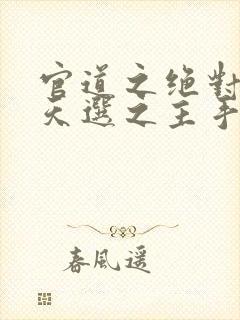 官道之绝對
天選之主手
春風遥